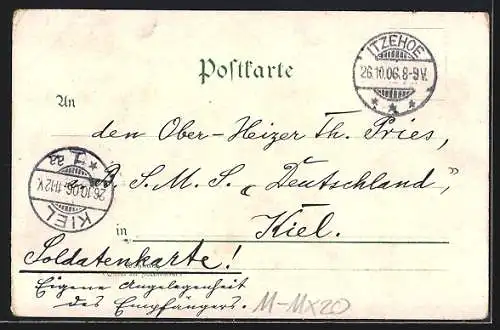 Postkarte
ITZEHOE
26.10.06.8-9V.
An
den Ober-Heizer Th. Pries,
S. M. S. „Deutschland"
in Kiel.
KIEL
26.10.06.11-12V.
Soldatenkarte!
Eigene Angelegenheit
des Empfängers.
M-MX20